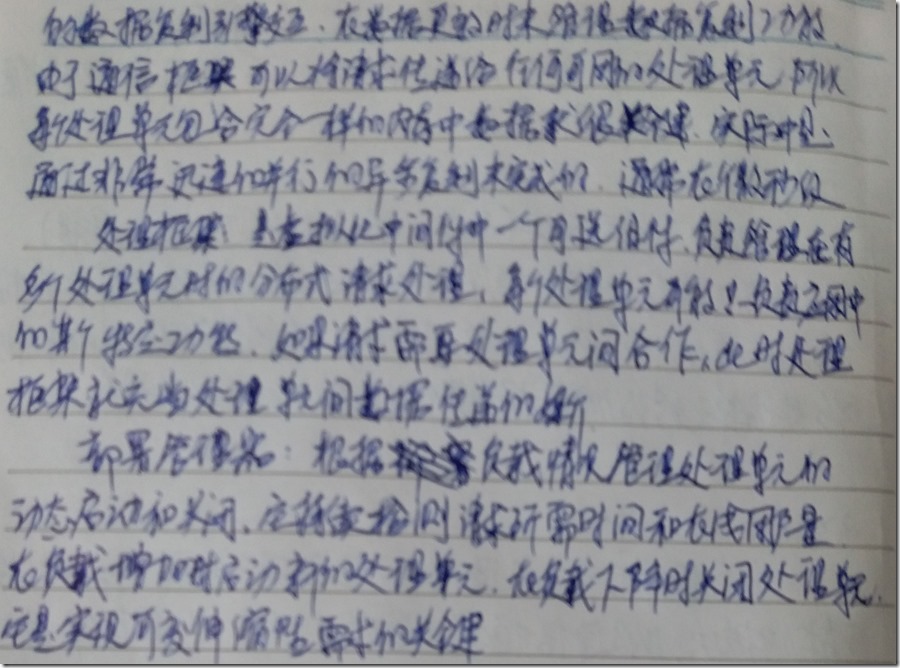 的数据复制引擎交互,在数据更新时来管理数据复制功能
由于通信框架可以将请求传递给任何可用的处理单元 所以
每个处理单元包含完全一样的内存中数据就很关键.实际中是
通过非常迅速的并行的异步复制来完成的,通常在微秒级
处理框架:是虚拟化中间件中一个可选组件,负责管理在有
多个处理单元时的分布式请求处理,每个处理单元可能只负责应用中
的某个特定功能.如果请求需要处理单元间合作,此时处理
框架就充当处理单元间数据传递的媒介
部署管理器:根据负载情况管理处理单元的
动态启动和关闭,它持续检测请求所需时间和在线用户量
在负载增加时启动新的处理单元,在负载下降时关闭处理单元.
它是实现可变伸缩性需求的关键